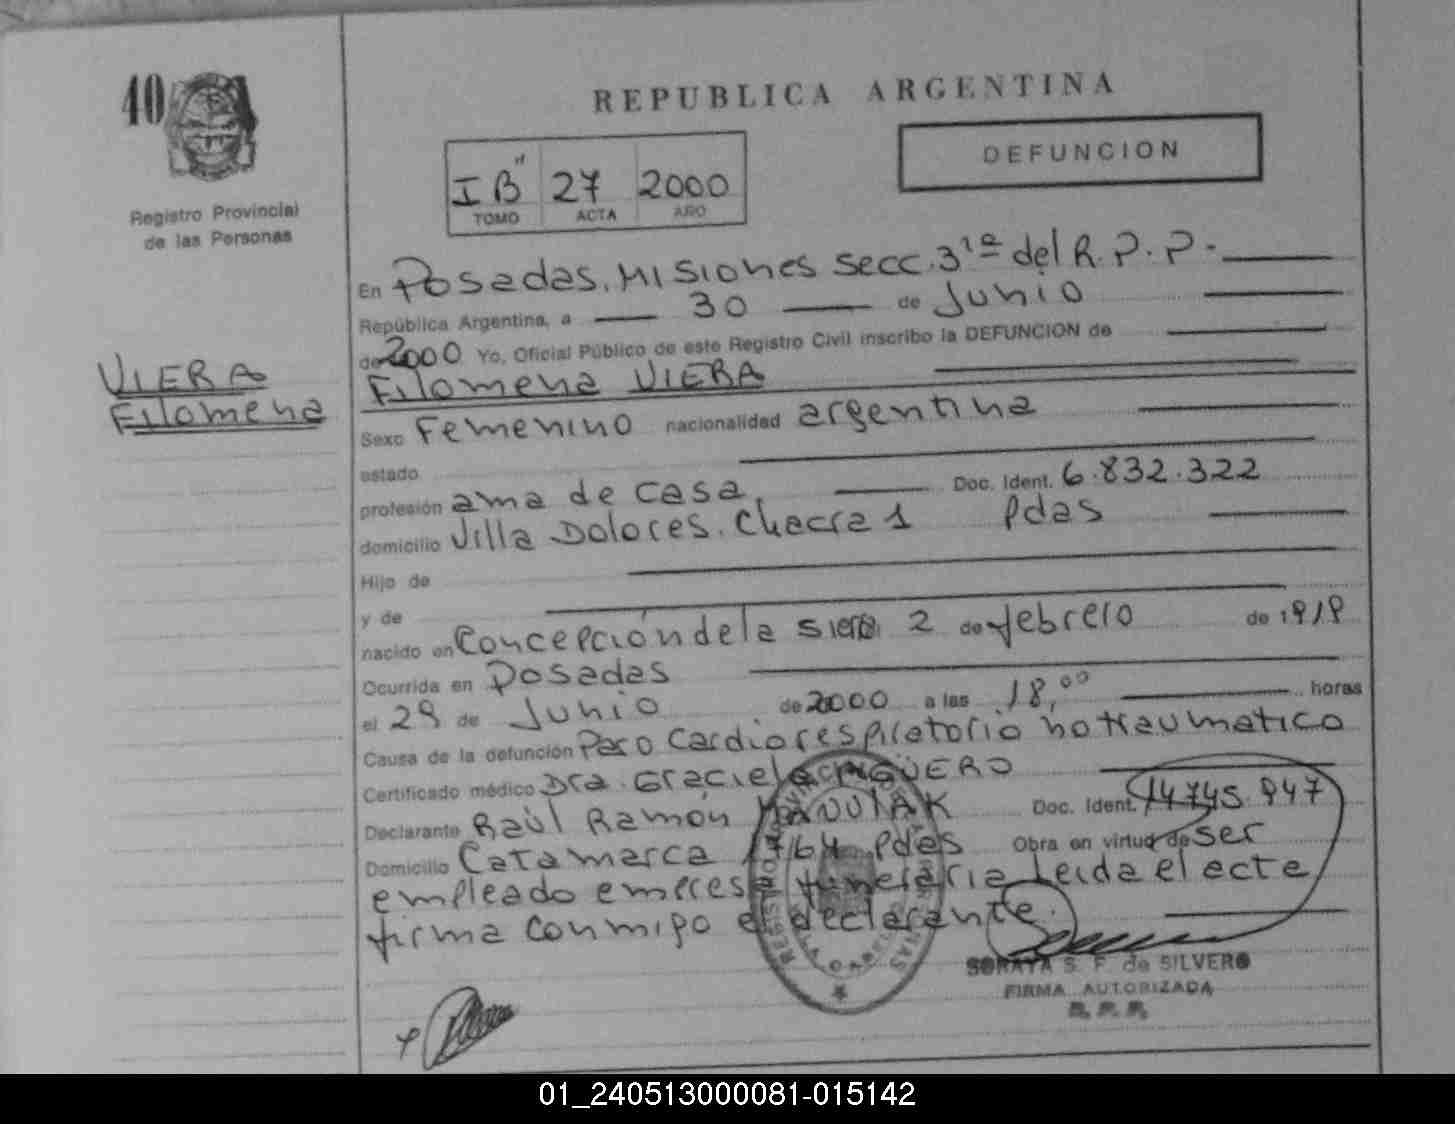 40
REPUBLICA ARGENTINA
DEFUNCION
I B" 27 2000
TOMO ACTA AÑO
Registro Provincial
de las Personas
En Posadas, Misiones secc. 3ra del R.P.P.
República Argentina, a 30 de Junio
de 2000 Yo, Oficial Público de este Registro Civil inscribo la DEFUNCION de
VIERA
Filomena
Filomena VIERA
Sexo Femenino nacionalidad argentina
estado
profesión ama de casa, Doc. Ident. 6.832.322
domicilio Villa Dolores. Chacra 1 Pdas
Hijo de
y de
nacido en Concepción de la Sierra 2 de febrero de 1919
Ocurrida en Posadas
el 29 de Junio de 2000 a las 18,00 horas
Causa de la defunción Paro Cardiorespiratorio no traumatico
Certificado médico Dra. Graciela
Declarante Raúl Ramón Doc. Ident. 14.745.947
Domicilio Catamarca 1764 Pdas Obra en virtud de ser
empleado empresa funeraria Leida el acta
firma conmigo el declarante.
SORAYA S. F. de SILVERO
FIRMA AUTORIZADA
R.P.P.
01_240513000081-015142